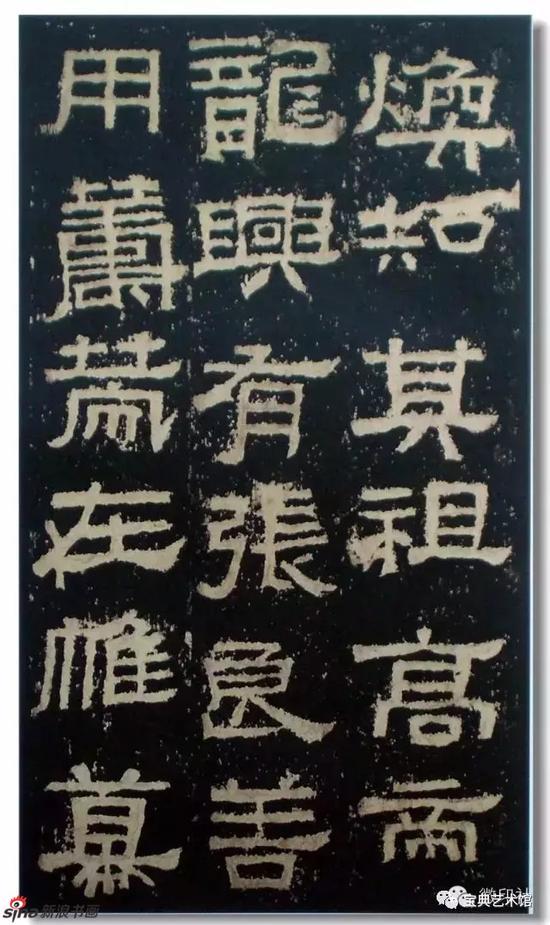 煥知其祖高帝
龍興有張良善
用籌策在帷幕
sina新浪书画
微印社
宝典艺术馆